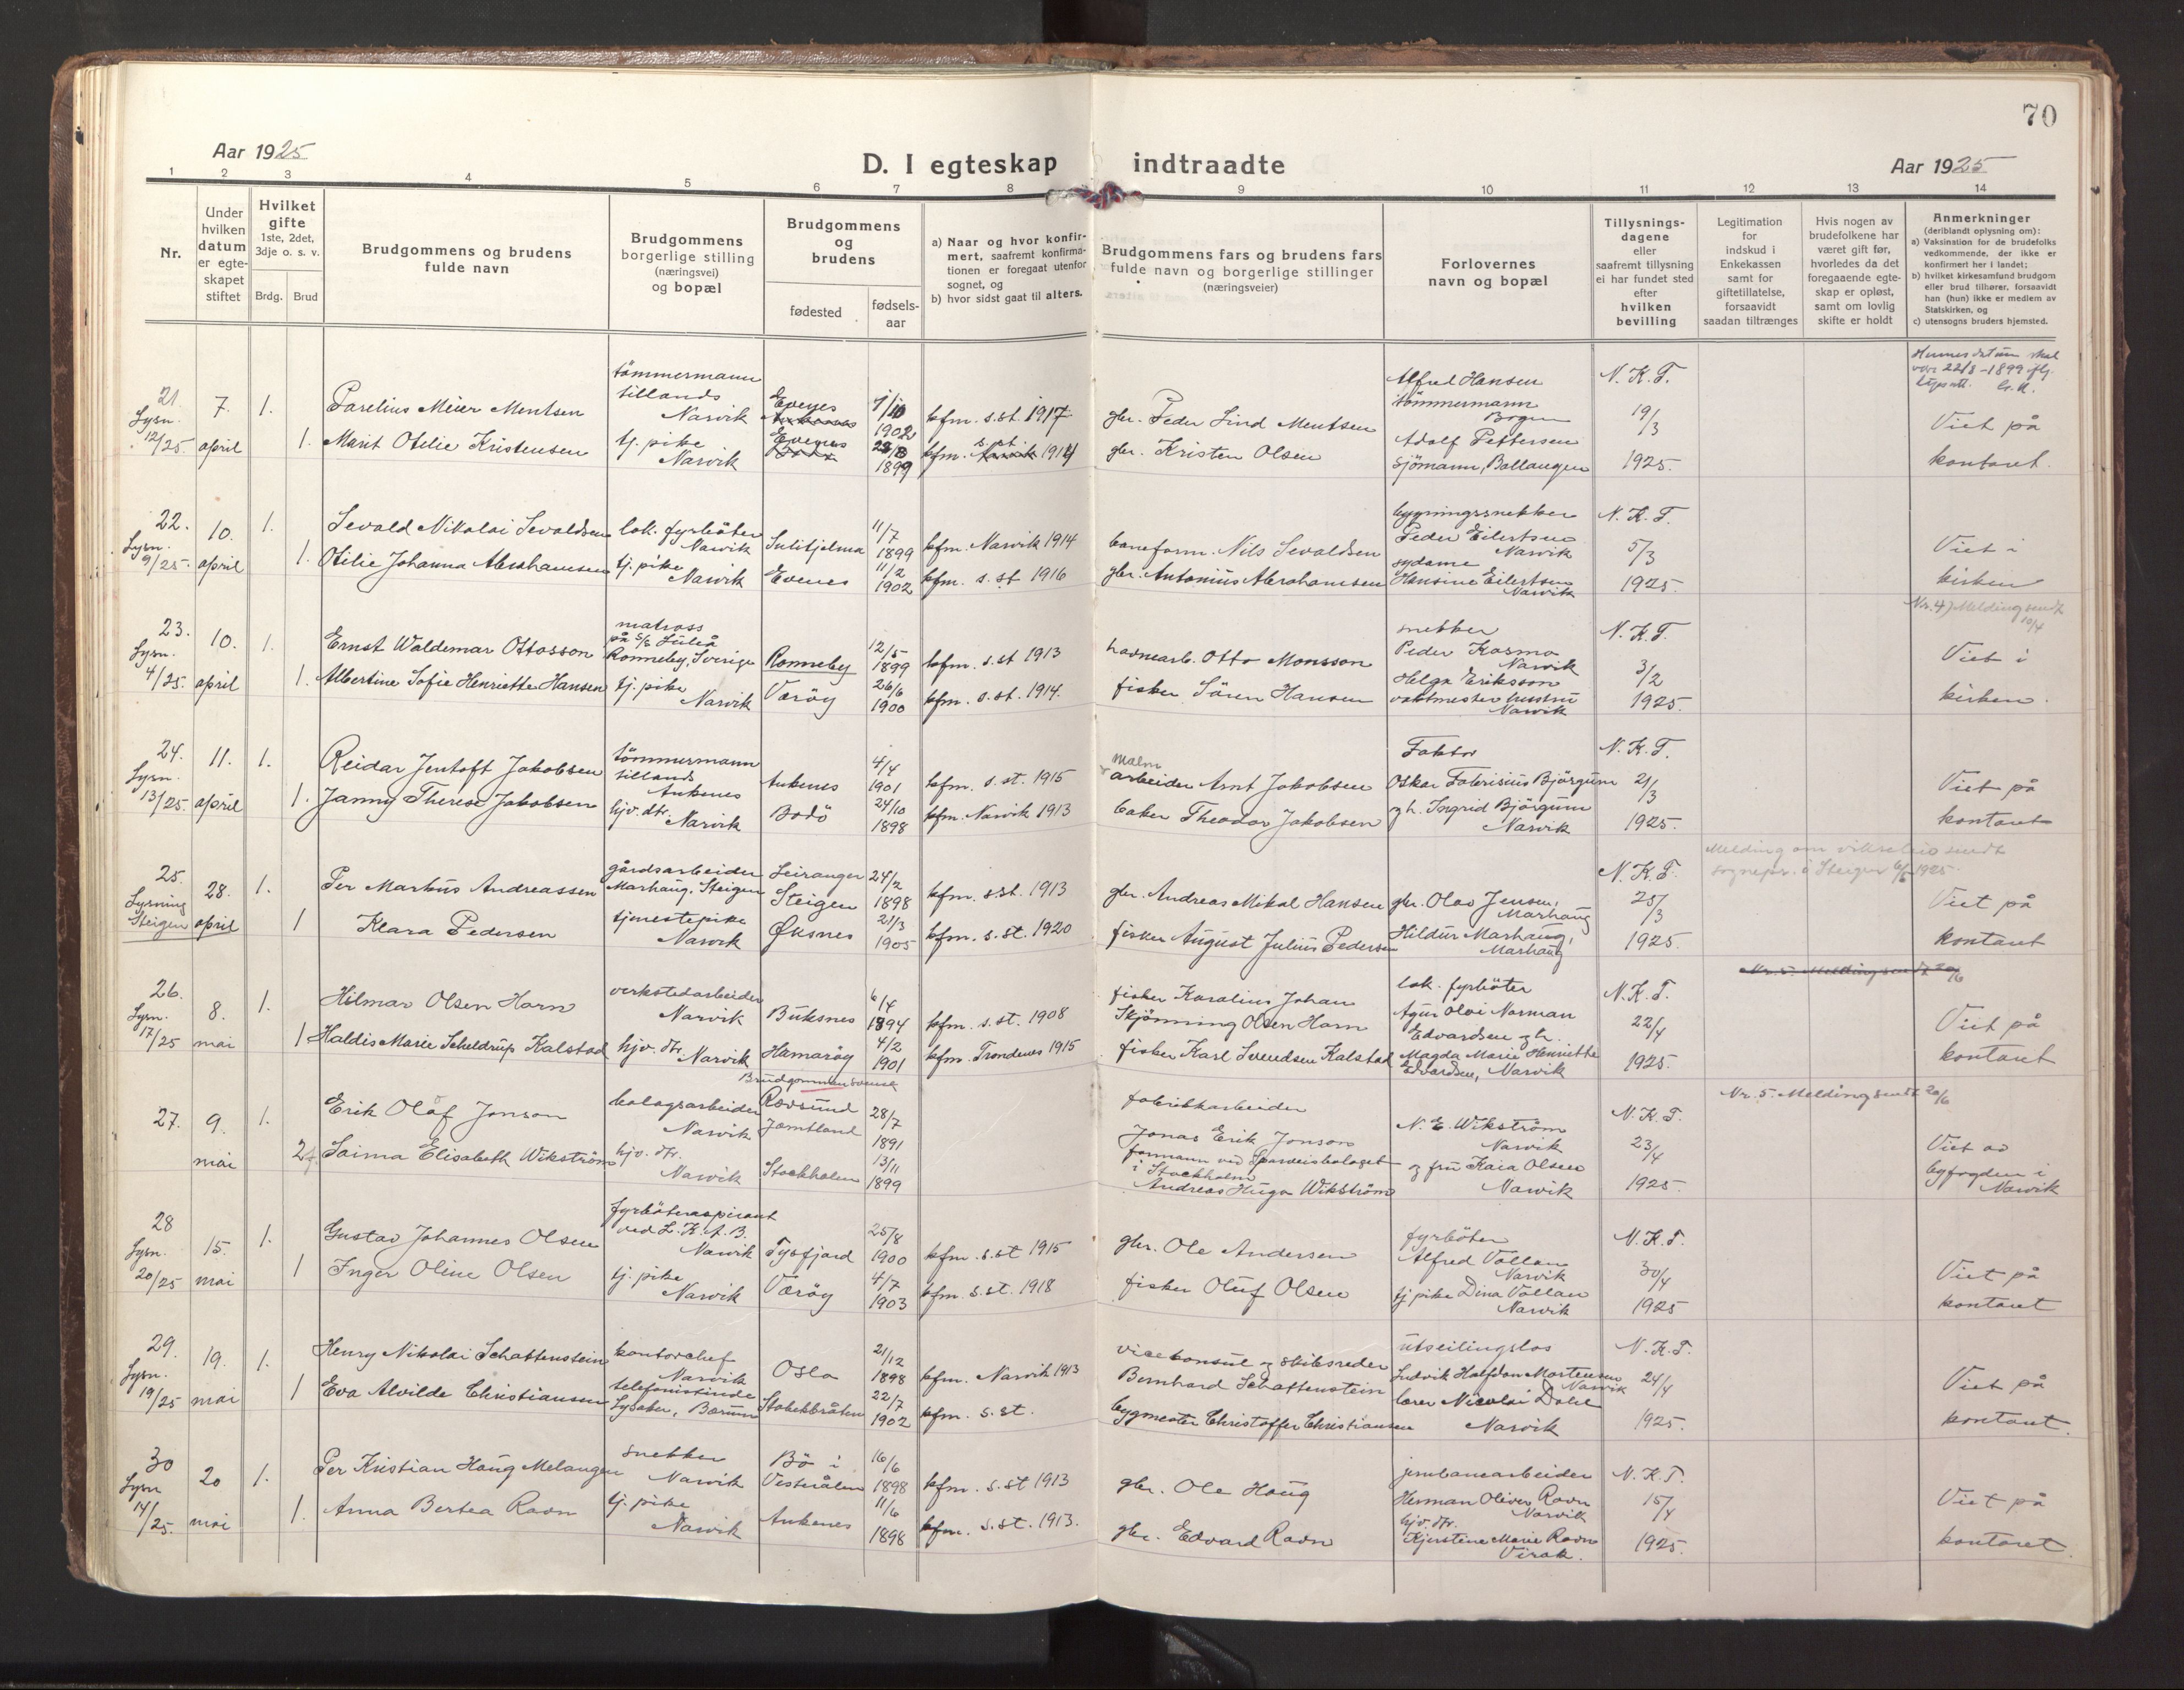 70
Aar 1925
D. I egteskap indtraadte
Aar 1925
1 2 3 4 5 6 7 8 9 10 11 12 13 14
Nr.
Under
hvilken
datum
er egte-
skapet
stiftet
Hvilket
gifte
1ste, 2det,
3dje o. s. v.
Brdg. Brud
Brudgommens og brudens
fulde navn
Brudgommens
borgerlige stilling
(næringsvei)
og bopæl
Brudgommens
og
brudens
fødested
fødsels-
aar
a) Naar og hvor konfir-
mert, saafremt konfirma-
tionen er foregaat utenfor
sognet, og
b) hvor sidst gaat til alters.
Brudgommens fars og brudens fars
fulde navn og borgerlige stillinger
(næringsveier)
Forlovernes
navn og bopæl
Tillysnings-
dagene
eller
saafremt tillysning
ei har fundet sted
efter
hvilken
bevilling
Legitimation
for
indskud i
Enkekassen
samt for
giftetillatelse,
forsaavidt
saadan tiltrænges
Hvis nogen av
brudefolkene har
været gift før,
hvorledes da det
foregaaende egte-
skap er opløst,
samt om lovlig
skifte er holdt
Anmerkninger
(deriblandt oplysning om):
a) Vaksination for de brudefolks
vedkommende, der ikke er
konfirmert her i landet;
b) hvilket kirkesamfund brudgom
eller brud tilhører, forsaavidt
han (hun) ikke er medlem av
Statskirken, og
c) utensogns bruders hjemsted.
21.
Lysn.
12/25.
7.
april
1.
1.
Parelius Meier Mentsen
Marit Otelie Kristensen
tömmermann
tillands
Narvik
tj. pike
Narvik
Evenes
Ankenes
1/10
1902
Evenes
Bodö
22/8
1899
kfm. s. st. 1917
s. st.
kfm. Narvik 1914
gbr. Peder Lind Mentsen
gbr. Kristen Olsen
Alfred Hansen
tömmermann
Bogen
Adolf Pettersen
sjömann, Ballangen
N. K. T.
19/3
1925.
Hennes datum skal
vær 22/8-1899 flg.
Viet på
kontoret.
22.
Lysn.
9/25.
10.
april
1.
1.
Sevald Nikolai Sevaldsen
Otilie Johanna Abrahamsen
lok. fyrböter
Narvik
tj. pike
Narvik
Sulitjelma
Evenes
11/7
1899
11/2
1902
kfm. Narvik 1914
kfm. s. st 1916
baneform. Nils Sevaldsen
gbr. Antonius Abrahamsen
bygningssnekker
Peder Eilertsen
Narvik
sydame
Hansine Eilertsen
Narvik
N. K. T.
5/3
1925.
Viet i
kirken
23.
Lysn.
4/25.
10.
april
1.
1.
Ernst Waldemar Ottosson
Albertine Sofie Henriette Hansen
matros
på S/S Luleå
Ronneby, Sverige
tj. pike
Narvik
Ronneby
Værøy
12/5
1899
26/6
1900
kfm. s. st 1913
kfm. s. st. 1914.
havnearb. Otto Monsson
fisker Sören Hansen
snekker
Peder Kosmo
Narvik
Helga Eriksson
vaktmester hustru
Narvik
N. K. T.
3/2
1925.
Nr. 4) Melding sendt
10/4
Viet i
kirken.
24.
Lysn.
13/25.
11.
april
1.
1.
Reidar Jentoft Jakobsen
Janny Therese Jakobsen
tömmermann
tillands
Ankenes
hjv. dtr.
Narvik
Ankenes
Bodö
4/4
1901
24/10
1898
kfm. s. st. 1915
kfm. Narvik 1913
Malm
arbeider Arnt Jakobsen
baker Theodor Jakobsen
Faktor
Oskar Fabrisius Björgum
og h. Ingrid Björgum
Narvik
N. K. T.
21/3
1925.
Viet på
kontoret
25.
Lysning
Steigen
28.
april
1.
1
Per Markus Andreassen
Klara Pedersen
gårdsarbeider
Marhaug, Steigen
tjenestepike
Narvik
Leiranger
Steigen
Øksnes
24/2
1898
21/3
1905
kfm. s.st. 1913
kfm. s. st. 1920
gbr. Andreas Mikal Hansen
fisker August Julius Pedersen
gbr. Olav Jensen,
Marhaug
Hildur Marhaug,
Marhaug
N. K. T.
25/3
1925.
Melding om vikselsio sendt
sognepr. i Steigen 6/6 1925.
Viet på
kontoret
26.
Lysn.
17/25
8.
mai
1.
1
Hilmar Olsen Horn
Haldis Marie Scheldrup Kalstad
verkstedarbeider
Narvik
hjv. dtr.
Narvik
Buksnes
Hamarøy
6/4
1894
4/2
1901
kfm. s. st. 1908
kfm. Trondenes 1915
fisker Karolius Johan
Skjönning Olsen Horn
fisker Karl Svendsen Kalstad
lok. fyrböter
Agur Olai Norman
Edvardsen og h.
Magda Marie Henriette
Edvardsen, Narvik
N. K. T.
22/4
1925.
Nr. 5. Melding sendt 20/6
Viet på
kontoret
27.
9.
mai
1.
2.
Erik Olof Jonson
Saima Elisabeth Wikström
bolagsarbeider
Narvik
hjv. dtr.
Narvik
Brudgommen svensk
Revsund
Jämtland
Stockholm
28/7
1891
13/11
1899
fabrikkarbeider
Jonas Erik Jonson
formann ved Sparveisbolaget
i Stockholm
Andreas Hugo Wikström
N. E. Wikström
Narvik
og fru Kaia Olsen
Narvik
N. K. T.
23/4
1925.
Nr. 5. Melding sendt 20/6
Viet av
byfogden i
Narvik
28
Lysn.
20/25
15.
mai
1.
1
Gustav Johannes Olsen
Inger Oline Olsen
fyrböteraspirant
ved L. K. A. B.
Narvik
tj. pike
Narvik
Tysfjord
Værøy
25/8
1900
4/7
1903
kfm. s. st 1915
kfm. s. st. 1918
gbr. Ole Andersen
fisker Oluf Olsen
fyrböter
Alfred Vollan
Narvik
tj pike Dina Vollan
Narvik
N. K. T.
30/4
1925
Viet på
kontoret
29.
Lysn.
19/25
19.
mai
1.
1
Henry Nikolai Schattenstein
Eva Alvilde Christiansen
kontorchef
Narvik
telefonistinde
Lysaker, Bærum
Oslo
Stabekkbråten
21/12
1898
22/7
1902
kfm. Narvik 1913
kfm. s. st.
vicekonsul og skibsreder
Bernhard Schattenstein
bygmester Christoffer Christiansen
utseilingslos
Ludvik Halfdan Mortensen
Narvik
lærer Nicolai Dahl
Narvik
N. K. T.
24/4
1925.
Viet på
kontoret.
30
Lysn
14/25.
20
mai
1.
1.
Per Kristian Haug Melangen
Anna Bertea Ravn
snekker
Narvik
tj. pike
Narvik
Bö i
Vesterålen
Ankenes
16/6
1898
11/6
1898
kfm. s. st 1913
kfm. s. st. 1913.
gbr. Ole Haug
gbr. Edvard Ravn
jernbanearbeider
Herman Oliver Ravn
Narvik
hjv. dtr.
Kjerstine Marie Ravn
Virak.
N. K. T.
15/4
1925.
Viet på
kontoret.